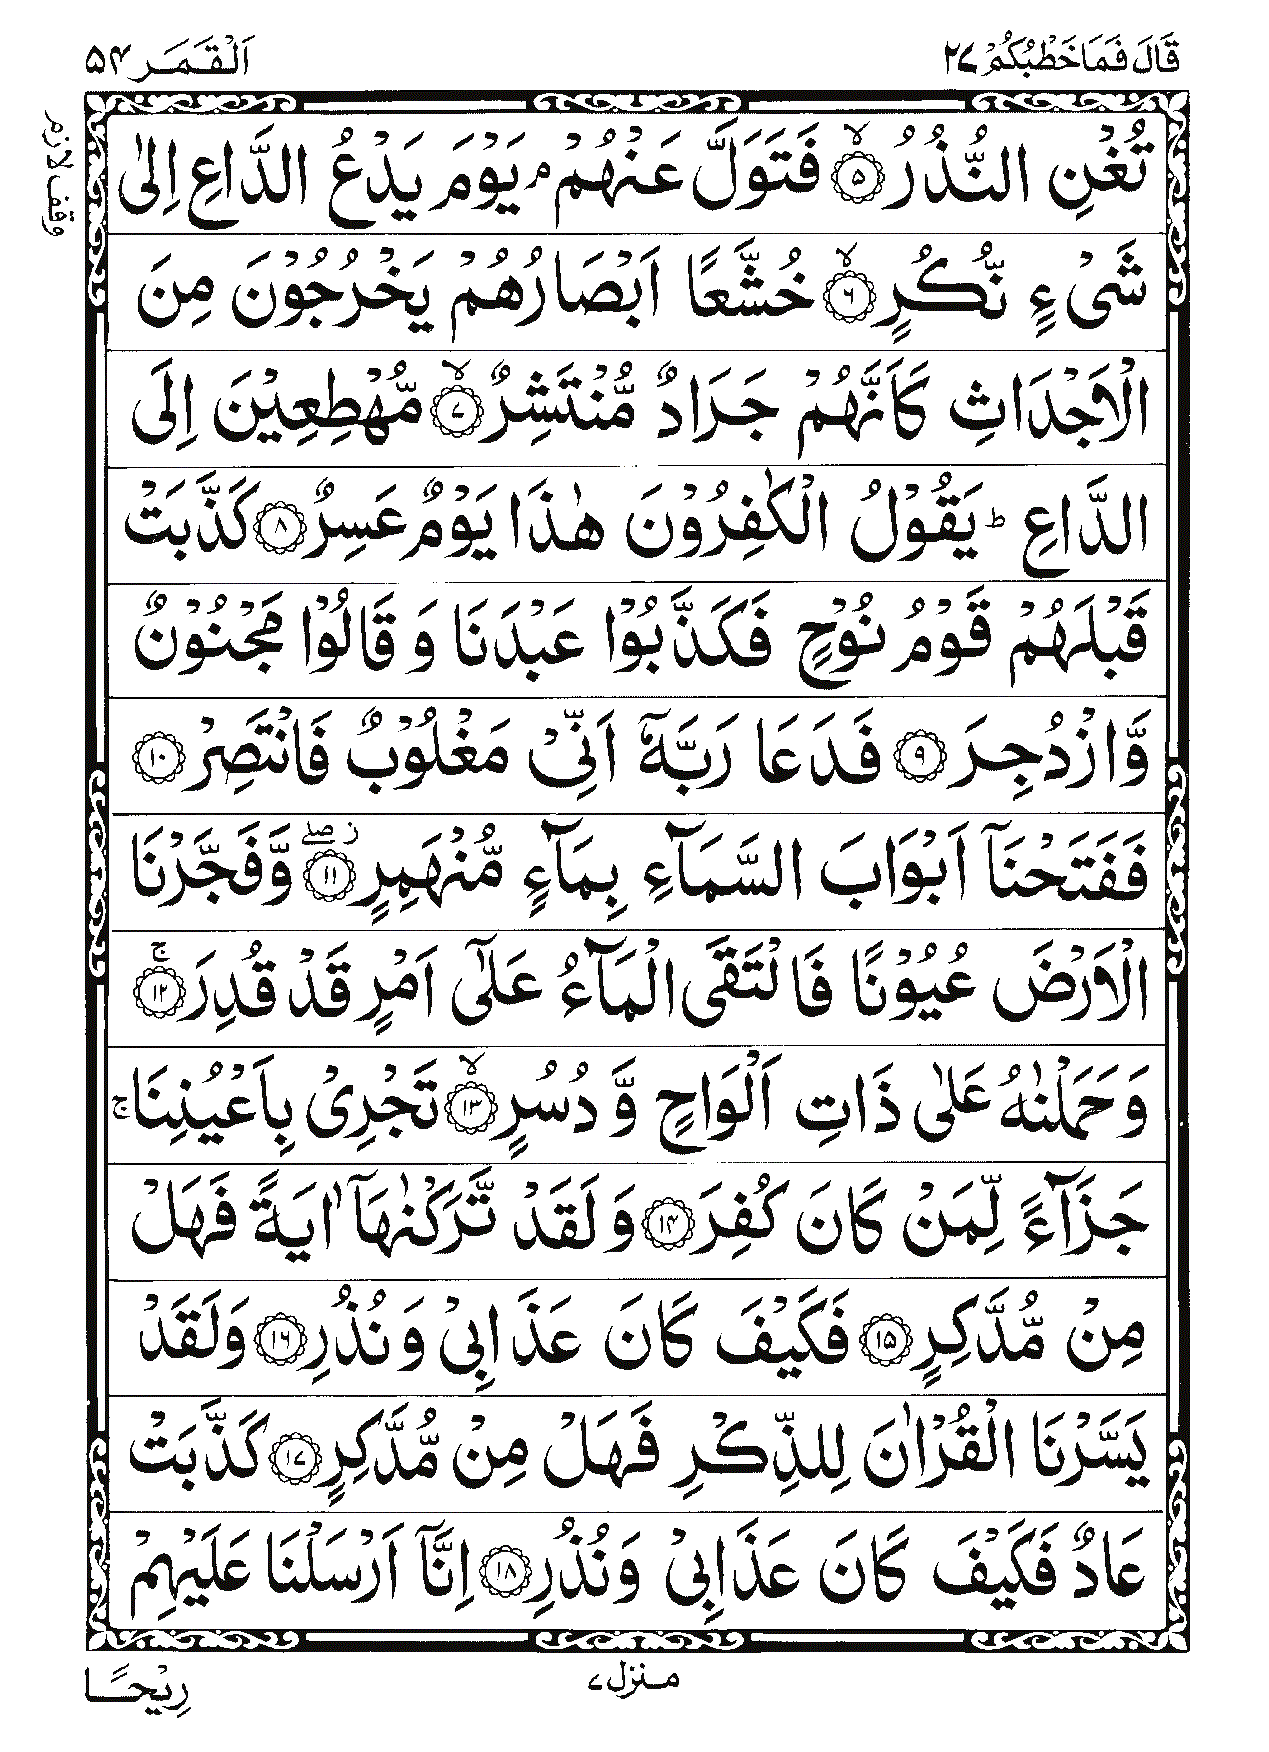 قَالَ فَمَا خَطْبُكُمْ ٢٧
اَلْقَمَر ٥٤
وقف لازم
تُغْنِ النُّذُرُ ۙ‏﴿۵﴾ فَتَوَلَّ عَنْهُمْ ۘ يَوْمَ يَدْعُ الدَّاعِ اِلٰى
شَىْءٍ نُّكُرٍ ۙ‏﴿۶﴾ خُشَّعًا اَبْصَارُهُمْ يَخْرُجُوْنَ مِنَ
الْاَجْدَاثِ كَاَنَّهُمْ جَرَادٌ مُّنْتَشِرٌ ۙ‏﴿۷﴾ مُّهْطِعِيْنَ اِلَى
الدَّاعِ ؕ يَقُوْلُ الْكٰفِرُوْنَ هٰذَا يَوْمٌ عَسِرٌ ﴿۸﴾ كَذَّبَتْ
قَبْلَهُمْ قَوْمُ نُوْحٍ فَكَذَّبُوْا عَبْدَنَا وَ قَالُوْا مَجْنُوْنٌ
وَّازْدُجِرَ ﴿۹﴾ فَدَعَا رَبَّهٗۤ اَنِّىْ مَغْلُوْبٌ فَانْتَصِرْ ﴿۱۰﴾
فَفَتَحْنَاۤ اَبْوَابَ السَّمَآءِ بِمَآءٍ مُّنْهَمِرٍ ۖ ز ﴿۱۱﴾ وَّفَجَّرْنَا
الْاَرْضَ عُيُوْنًا فَالْتَقَى الْمَآءُ عَلٰٓى اَمْرٍ قَدْ قُدِرَ ۚ‏﴿۱۲﴾
وَحَمَلْنٰهُ عَلٰى ذَاتِ اَلْوَاحٍ وَّ دُسُرٍ ۙ‏﴿۱۳﴾ تَجْرِىْ بِاَعْيُنِنَا ۚ
جَزَآءً لِّمَنْ كَانَ كُفِرَ ﴿۱۴﴾ وَلَقَدْ تَّرَكْنٰهَاۤ اٰيَةً فَهَلْ
مِنْ مُّدَّكِرٍ ﴿۱۵﴾ فَكَيْفَ كَانَ عَذَابِىْ وَنُذُرِ ﴿۱۶﴾ وَلَقَدْ
يَسَّرْنَا الْقُرْاٰنَ لِلذِّكْرِ فَهَلْ مِنْ مُّدَّكِرٍ ﴿۱۷﴾ كَذَّبَتْ
عَادٌ فَكَيْفَ كَانَ عَذَابِىْ وَنُذُرِ ﴿۱۸﴾ اِنَّاۤ اَرْسَلْنَا عَلَيْهِمْ
منزل ٧
رِيْحًا